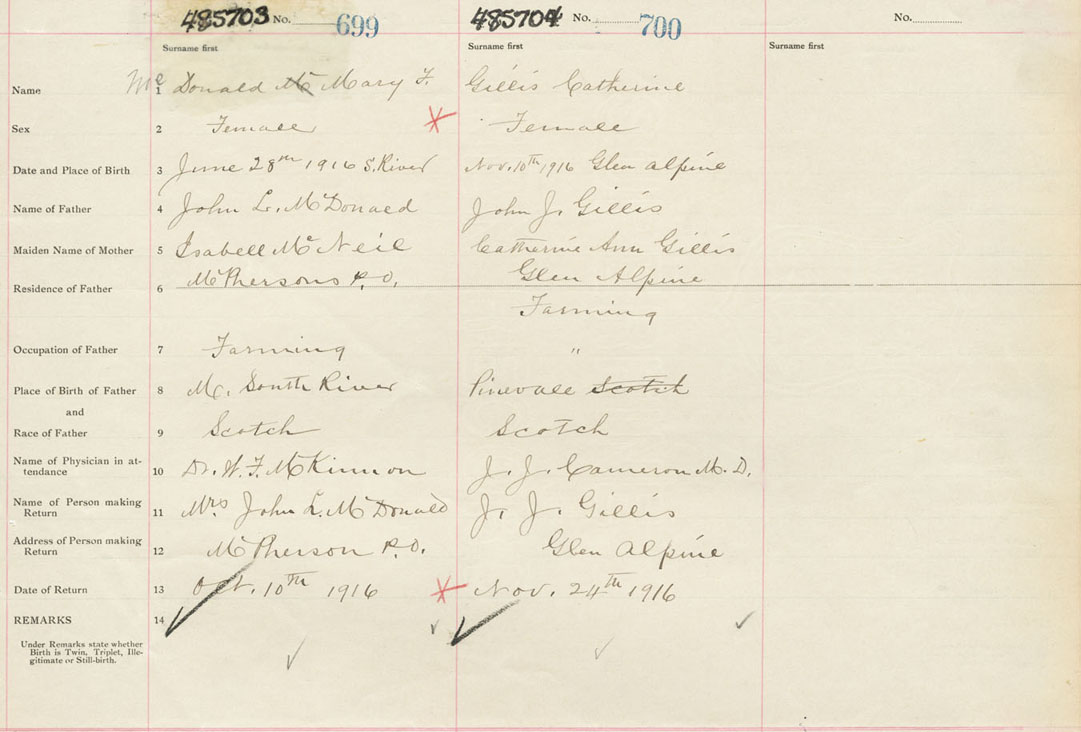 485703 No. 699 485704 No. 700 No.
Surname first Surname first Surname first
Name 1 Mc Donald Mc Mary F. Gillis Catherine
Sex 2 Female Female
Date and Place of Birth 3 June 28th 1916 S. River Nov. 10th 1916 Glen Alpine
Name of Father 4 John L. McDonald John J. Gillis
Maiden Name of Mother 5 Isabell McNeil Catherine Ann Gillis
Residence of Father 6 McPhersons P.O. Glen Alpine
Farming
Occupation of Father 7 Farming "
Place of Birth of Father 8 South River Pinevale Scotch
and
Race of Father 9 Scotch Scotch
Name of Physician in at-
tendance 10 Dr. W. F. McKinnon J. J. Cameron M. D.
Name of Person making
Return 11 Mrs John L. McDonald J. J. Gillis
Address of Person making
Return 12 McPherson P.O. Glen Alpine
Date of Return 13 Oct. 10th 1916 Nov. 24th 1916
REMARKS 14
Under Remarks state whether
Birth is Twin, Triplet, Ille-
gitimate or Still-birth.